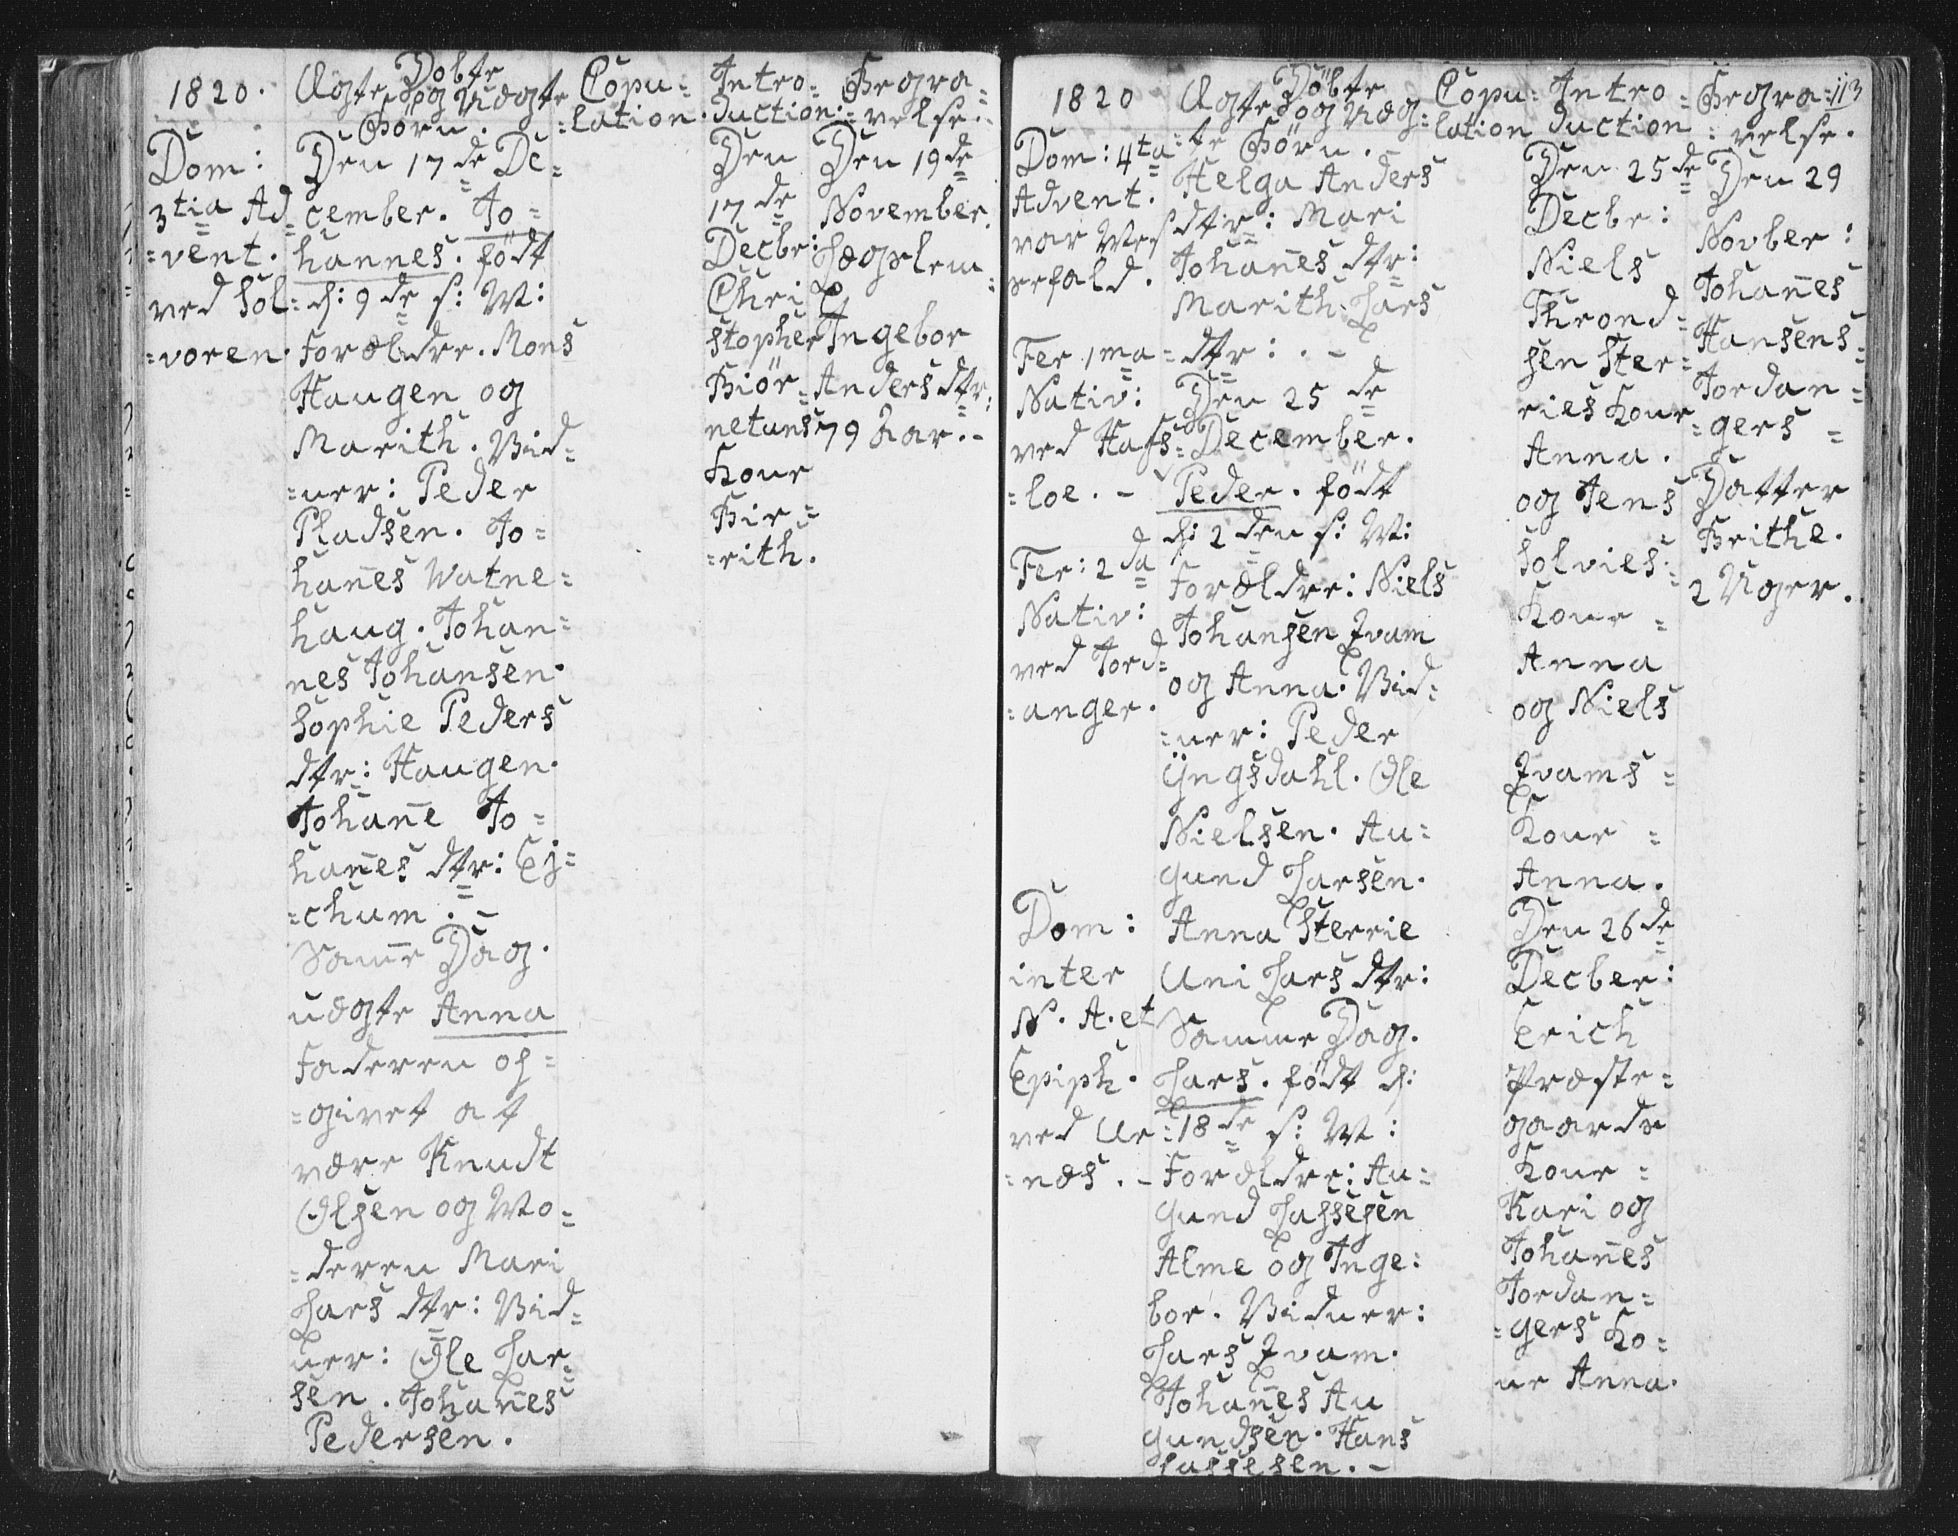 1820.
Ægte og Uægte
Døbte
Børn.
Copu=
=lation.
Intro=
duction.
Begra=
=velse.
Dom:
3tia Ad=
=vent.
ved Sol=
=voren.
Den 17de De=
cember. Jo=
hannes. født
d: 9de s: M:
Forældre. Mons
Haugen og
Marith. Vid=
=ner: Peder
Pladsen. Jo=
hannes Watne=
haug. Johan=
nes Johansen.
Sophie Peders
dtr: Haugen.
Johanne Jo=
hannes dtr: Ej=
=chum. -
Samme Dag.
uægte Anna
Faderen op=
=givet at
være Knudt
Olsen og Mo=
=deren Mari
Lars dtr: Vid=
ner: Ole Lar=
sen. Johannes
Pedersen.
Den
17de
Decbr:
Chri
stopher
Biør=
netuns
Kone
Bir=
=rith.
Den 19de
November
Lægslem=
Ingebor
Anders dtr:
79 Aar. -
1820
Døbte
Ægte og Uæg=
=te Børn.
Copu=
lation
Intro=
duction
Begra=
=velse.
113
Dom: 4ta
Advent.
var Mes
sefald.
Fer. 1ma
Nativ:
ved Hafs=
=loe. -
Fer: 2da
Nativ:
ved Jord=
=anger.
Dom:
inter
N. A. et
Epiph.
ved Ur=
=næs. -
Helga Anders
dtr: Mari
Johannes dtr:
Marith. Lars
=dtr: . -
Den 25de
December.
Peder. født
d: 2den s: M:
Forældre: Niels
Johansen Qvam
og Anna. Vid=
=ner: Peder
Yngsdahl. Ole
Nielsen. Au=
gund Larsen.
Anna Sterrie
Uni Lars dtr:
Samme Dag.
Lars. født d:
18de s: M:
Forældre: Au=
gund Lassesen
Alme og Inge=
bor. Vidner:
Lars Qvam.
Johannes Au
gundsen. Hans
Lassesen. -
Den 25de
Decbr:
Niels
Thrond=
sen Ster=
ries Kone
Anna.
og Jens
Solvies=
Kone =
Anna
og Niels
Qvams=
Kone =
Anna.
Den 26de
Decber:
Erich
Præste=
gaards
Kone =
Kari og
Johannes
Jordan=
=gers Ko=
ne Anna.
Den 29
Novber:
Johannes
Hansens=
Jordan=
=gers =
Datter
Brithe.
2 Uger.